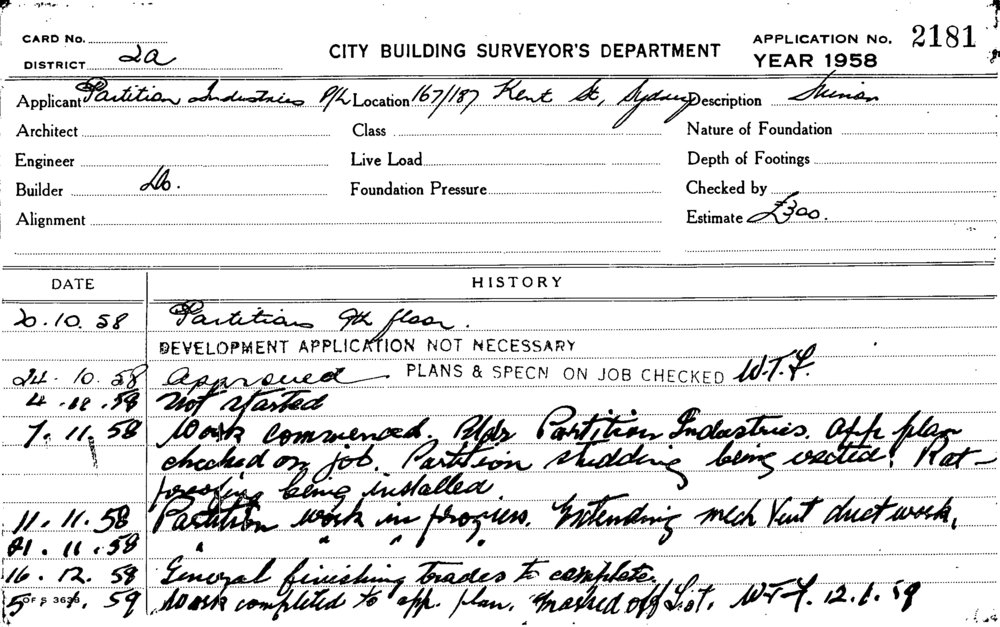 CARD No.
DISTRICT 2a
CITY BUILDING SURVEYOR'S DEPARTMENT
APPLICATION No. 2181
YEAR 1958
Applicant Partition Industries P/L Location 167/187 Kent St, Sydney Description
Architect Class Nature of Foundation
Engineer Live Load Depth of Footings
Builder Do. Foundation Pressure Checked by
Alignment Estimate £300.
DATE HISTORY
20.10.58 Partitions 9th floor.
DEVELOPMENT APPLICATION NOT NECESSARY
24.10.58 Approved PLANS & SPECN ON JOB CHECKED W.T.F.
4.11.58 Not started
7.11.58 Work commenced. Bldr Partition Industries. App plan
checked on job. Partition studding being erected. Rat-
proofing being installed
11.11.58 Partition work in progress. Extending mech Vent duct work.
21.11.58 " " " "
16.12.58 General finishing trades to complete.
5.1.59 Work completed to app. plan. Marked off List. W.T.F. 12.1.59
OF S 3626